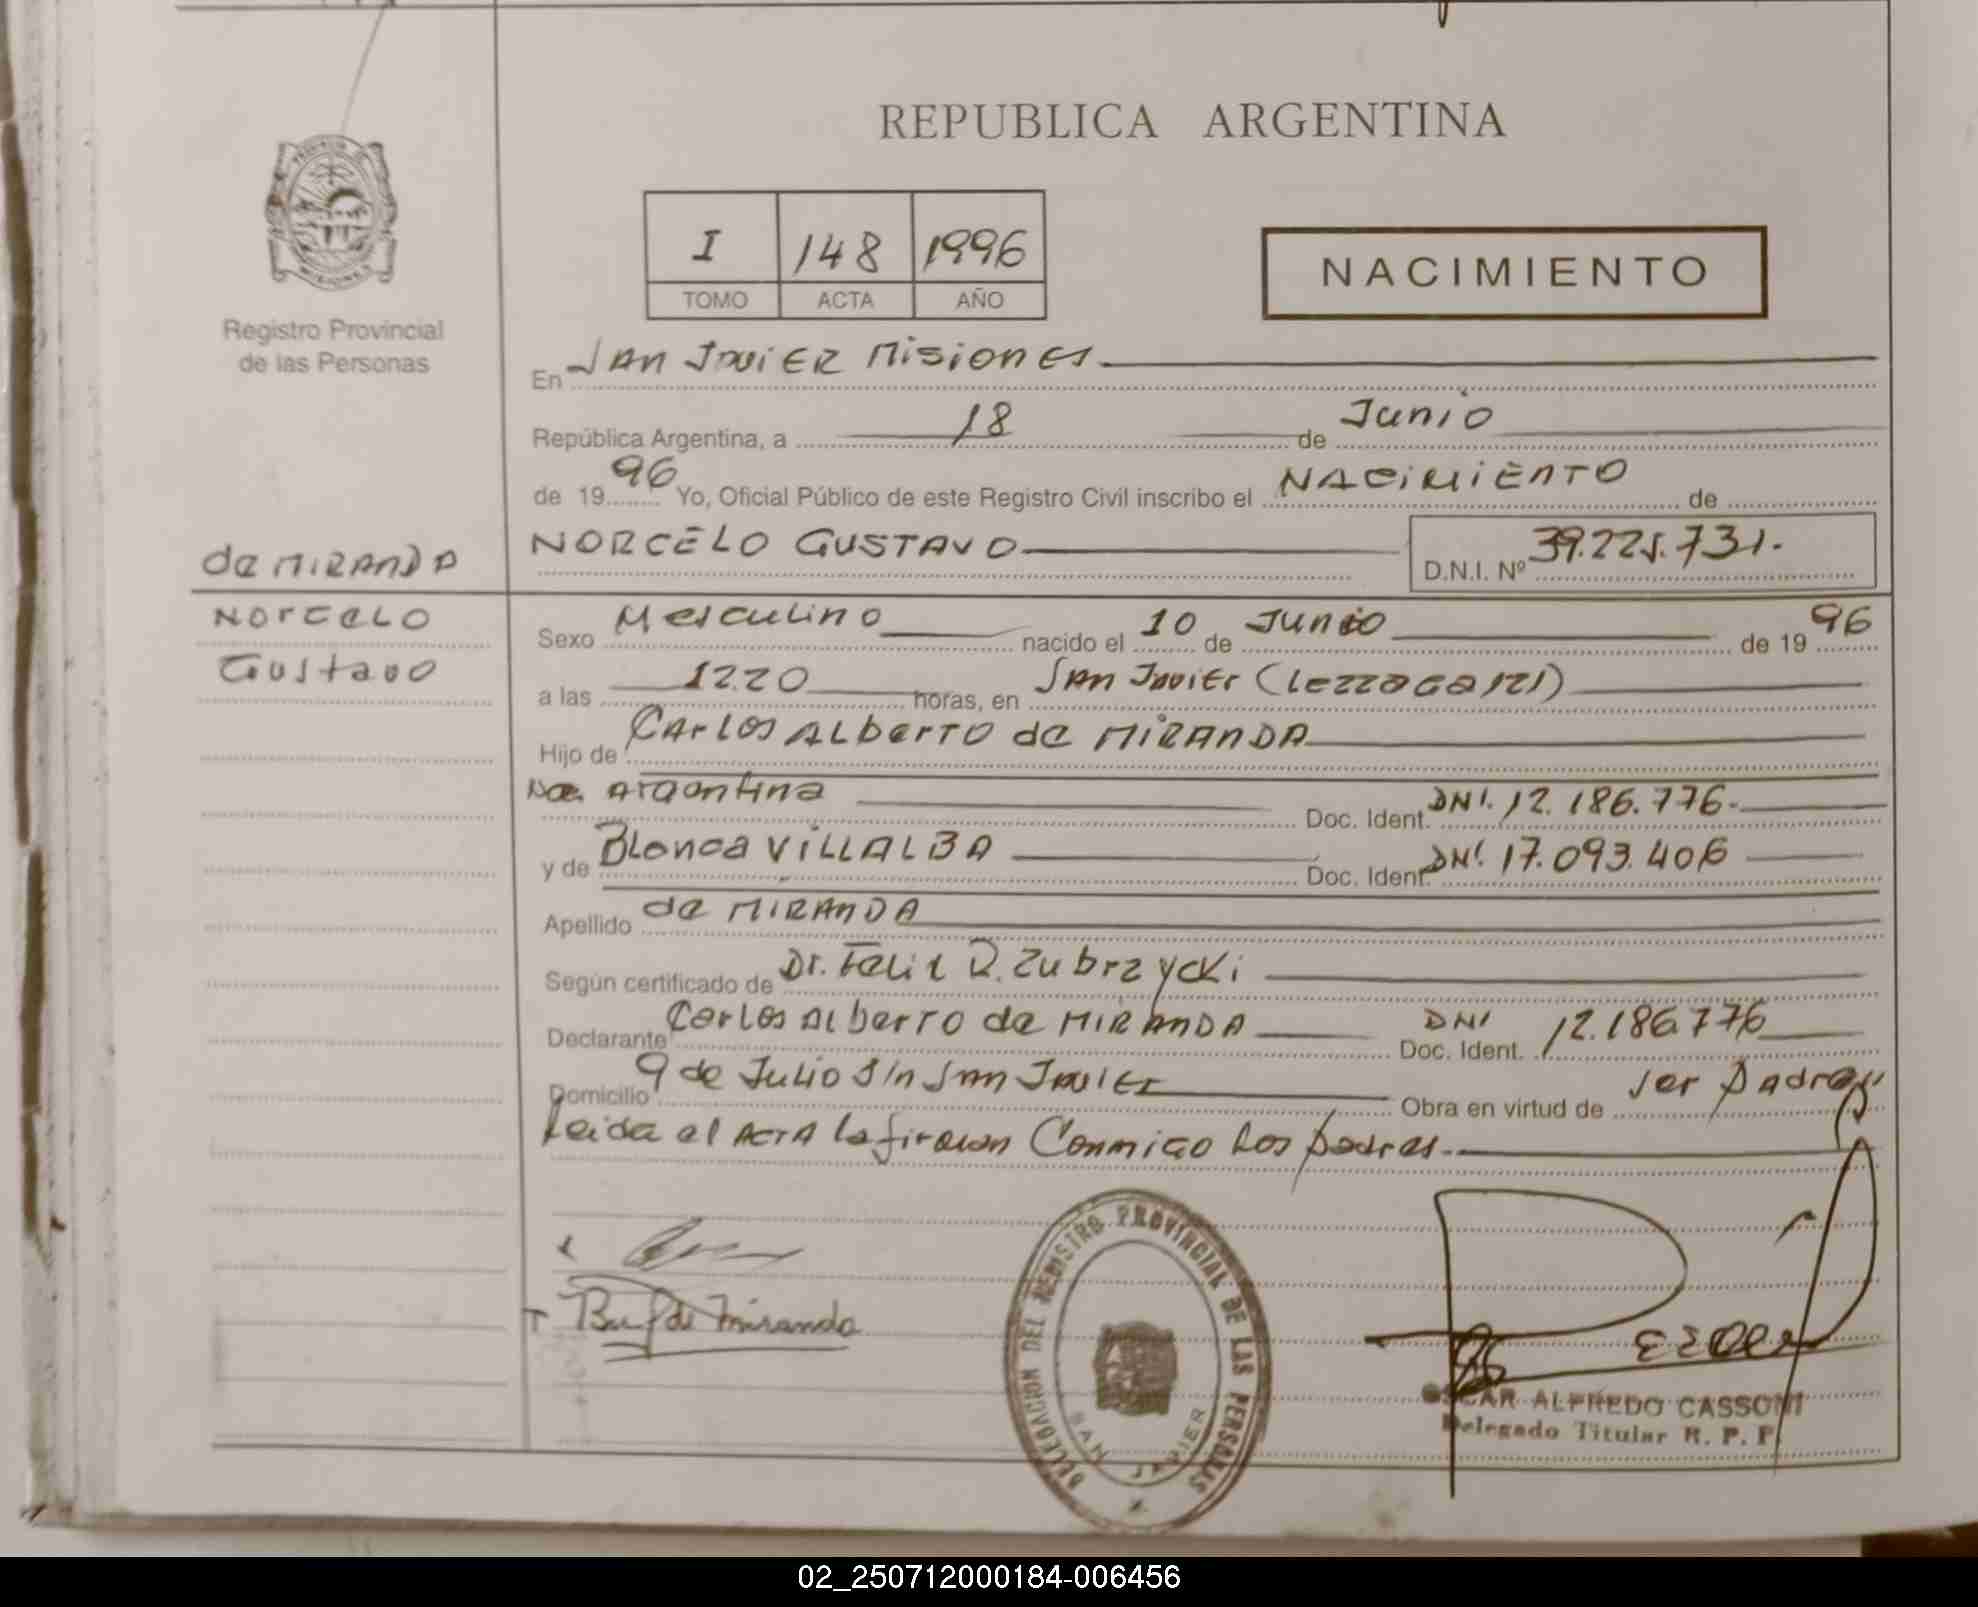 REPUBLICA ARGENTINA
I 148 1996
TOMO ACTA AÑO
NACIMIENTO
Registro Provincial
de las Personas
En SAN JAVIER MISIONES
República Argentina, a 18 de Junio
de 1996 Yo, Oficial Público de este Registro Civil inscribo el NACIMIENTO de
NORCELO GUSTAVO D.N.I. Nº 39.225.731.
de MIRANDA
NORCELO
Gustavo
Sexo Masculino nacido el 10 de Junio de 1996
a las 12.20 horas, en San Javier
Hijo de Carlos Alberto de MIRANDA
Nac. Argentina Doc. Ident. DNI. 12.186.776.
y de Blanca VILLALBA Doc. Ident. DNI. 17.093.406
Apellido de MIRANDA
Según certificado de Dr. Felix R. Zubrzycki
Declarante Carlos Alberto de MIRANDA Doc. Ident. DNI 12.186.776
Domicilio 9 de Julio S/n San Javier Obra en virtud de ser padre
Leida el ACTA la firman Conmigo Los padres.
de Miranda
DELEGACION DEL REGISTRO PROVINCIAL DE LAS PERSONAS
SAN JAVIER
OSCAR ALFREDO CASSONI
Delegado Titular R. P. P.
02_250712000184-006456